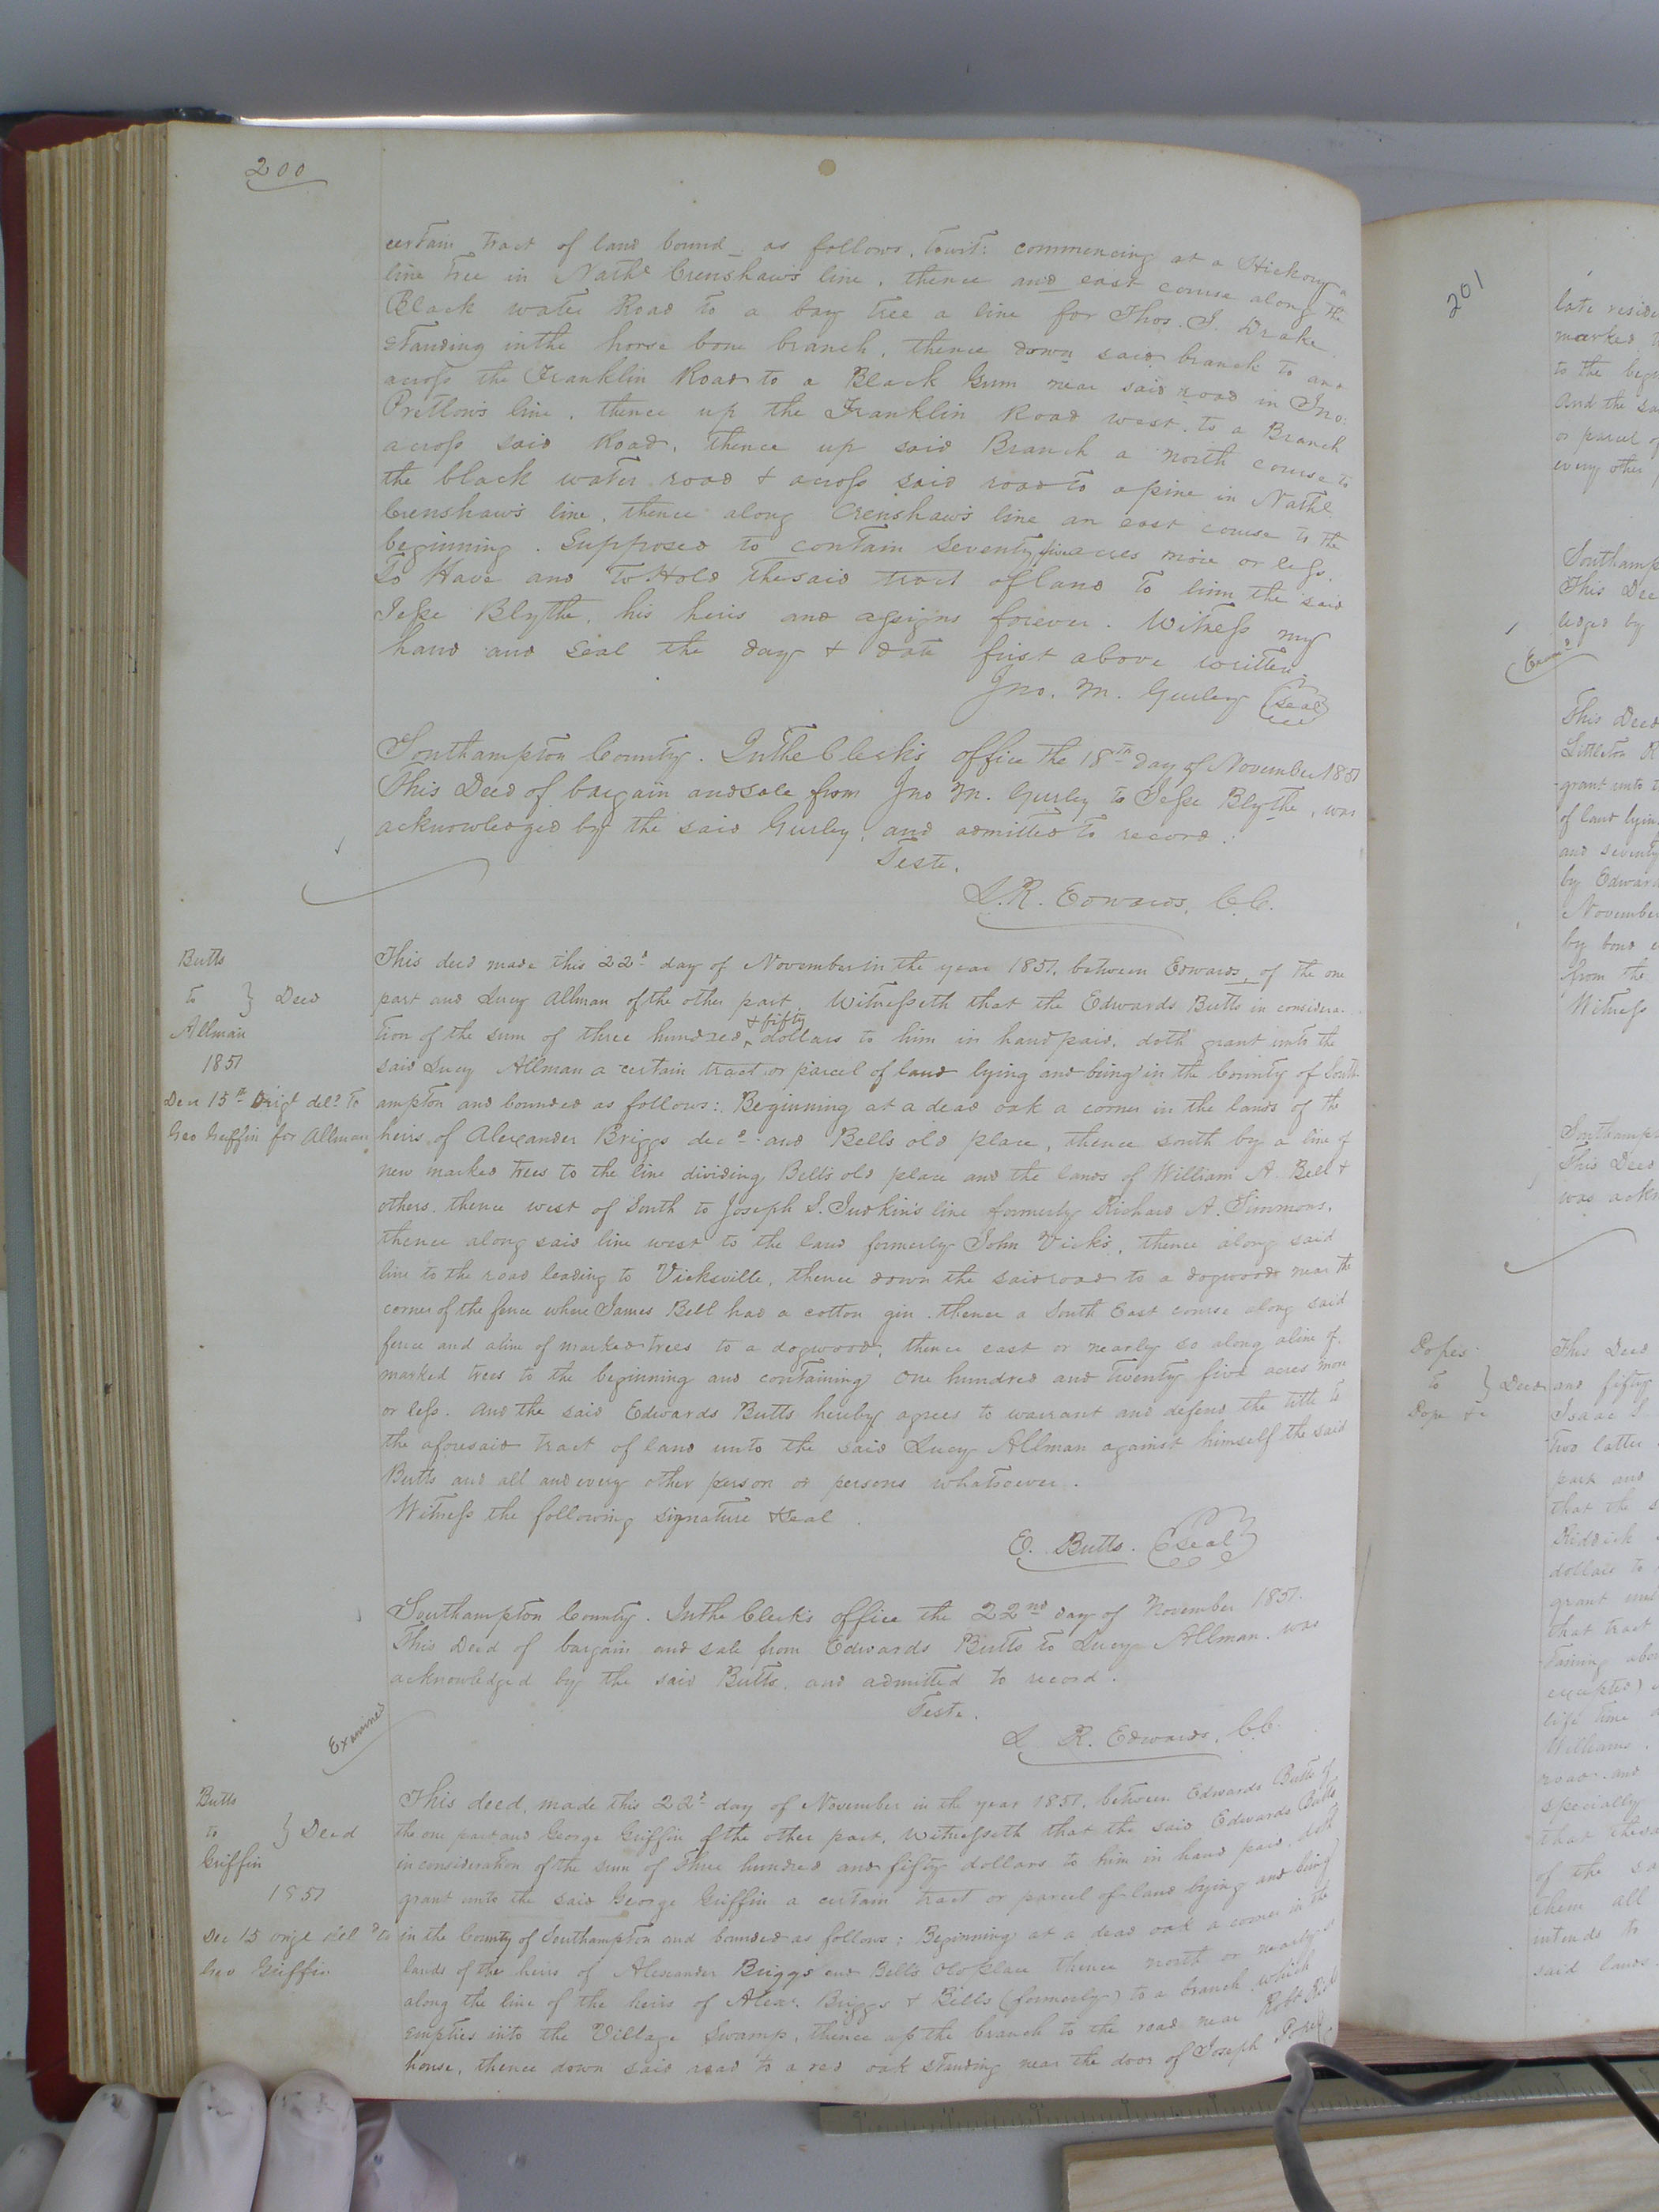 200
certain tract of land bound as follows, towit: commencing at a Hickory a
line tree in Nathl Crenshaw's line, thence and east course along the
Black water Road to a bay tree a line for Thos. J. Drake
standing in the horse bone branch, thence down said branch to and
across the Franklin Road to a Black Gum near said road in Jno:
Pretlow's line, thence up the Franklin Road west to a Branch
across said Road, thence up said Branch a north course to
the black water road & across said road to a pine in Nathl
Crenshaw's line, thence along Crenshaw's line an east course to the
beginning. Supposed to contain Seventy five acres more or less.
To Have and To Hold the said tract of land to him the said
Jesse Blythe, his heirs and assigns forever. Witness my
hand and seal the day & date first above written.
Jno. M. Gurley (Seal)
Southampton County. In the Clerk's office the 18th day of November 1851
This Deed of bargain and sale from Jno M. Gurley to Jesse Blythe, was
acknowledged by the said Gurley, and admitted to record.
Teste.
L. R. Edwards, C.C.
Butts
to } Deed
Allman
1851
Dec 15th Origl deld to
Geo Griffin for Allman
This deed made this 22d day of November in the year 1851, between Edwards, of the one
part and Lucy Allman of the other part, Witnesseth that the Edwards Butts in considera-
tion of the sum of three hundred & fifty dollars to him in hand paid, doth grant unto the
said Lucy Allman a certain tract or parcel of land lying and being in the County of South-
ampton and bounded as follows: Beginning at a dead oak a corner in the lands of the
heirs of Alexander Briggs decd and Bells old place, thence south by a line of
new marked trees to the line dividing Bells old place and the lands of William A. Bell &
others, thence west of South to Joseph S. Judkin's line formerly Richard A. Simmons,
thence along said line west to the land formerly John Vick's, thence along said
line to the road leading to Vicksville, thence down the said road to a dogwood near the
corner of the fence where James Bell had a cotton gin, thence a South East course along said
fence and a line of marked trees to a dogwood, thence east or nearly so along a line of
marked trees to the beginning and containing One hundred and twenty five acres more
or less. And the said Edwards Butts hereby agrees to warrant and defend the title to
the aforesaid tract of land unto the said Lucy Allman against himself the said
Butts and all and every other person or persons whatsoever.
Witness the following signature & seal
E. Butts. (Seal)
Southampton County. In the Clerk's office the 22nd day of November 1851.
This Deed of bargain and sale from Edwards Butts to Lucy Allman, was
acknowledged by the said Butts, and admitted to record.
Teste.
L R. Edwards, C.C.
Examined
Butts
to } Deed
Griffin
1851
Dec 15 origl deld to
Geo Griffin
This deed, made this 22d day of November in the year 1851, between Edwards Butts of
the one part and George Griffin of the other part, Witnesseth that the said Edwards Butts,
in consideration of the sum of Three hundred and fifty dollars to him in hand paid, doth
grant unto the said George Griffin a certain tract or parcel of land lying and being
in the County of Southampton and bounded as follows: Beginning at a dead oak a corner in the
lands of the heirs of Alexander Briggs and Bells Old place thence north or nearly so
along the line of the heirs of Alexr. Briggs & Bells (formerly) to a branch which
empties into the Village Swamp, thence up the branch to the road near Robt
house, thence down said road to a red oak standing near the door of Joseph
201
late resid
marked
to the beg
and the sa
or parcel of
every other
Southamp
This Dee
ledged by
Examd
This Deed
Littleton R
grant unto
of land lyin
and seventy
by Edward
November
by bond
from the
Witness
Southamp
This Deed
was ackn
Popes
to } Deed
Pope &c
This Deed
and fifty
Isaac S
two latter
part and
that the s
Riddick
dollars to
grant un
that tract
taining abo
excepted)
life time
Williams
road and
specially
that the sa
of the sa
them all
intends to
said lands